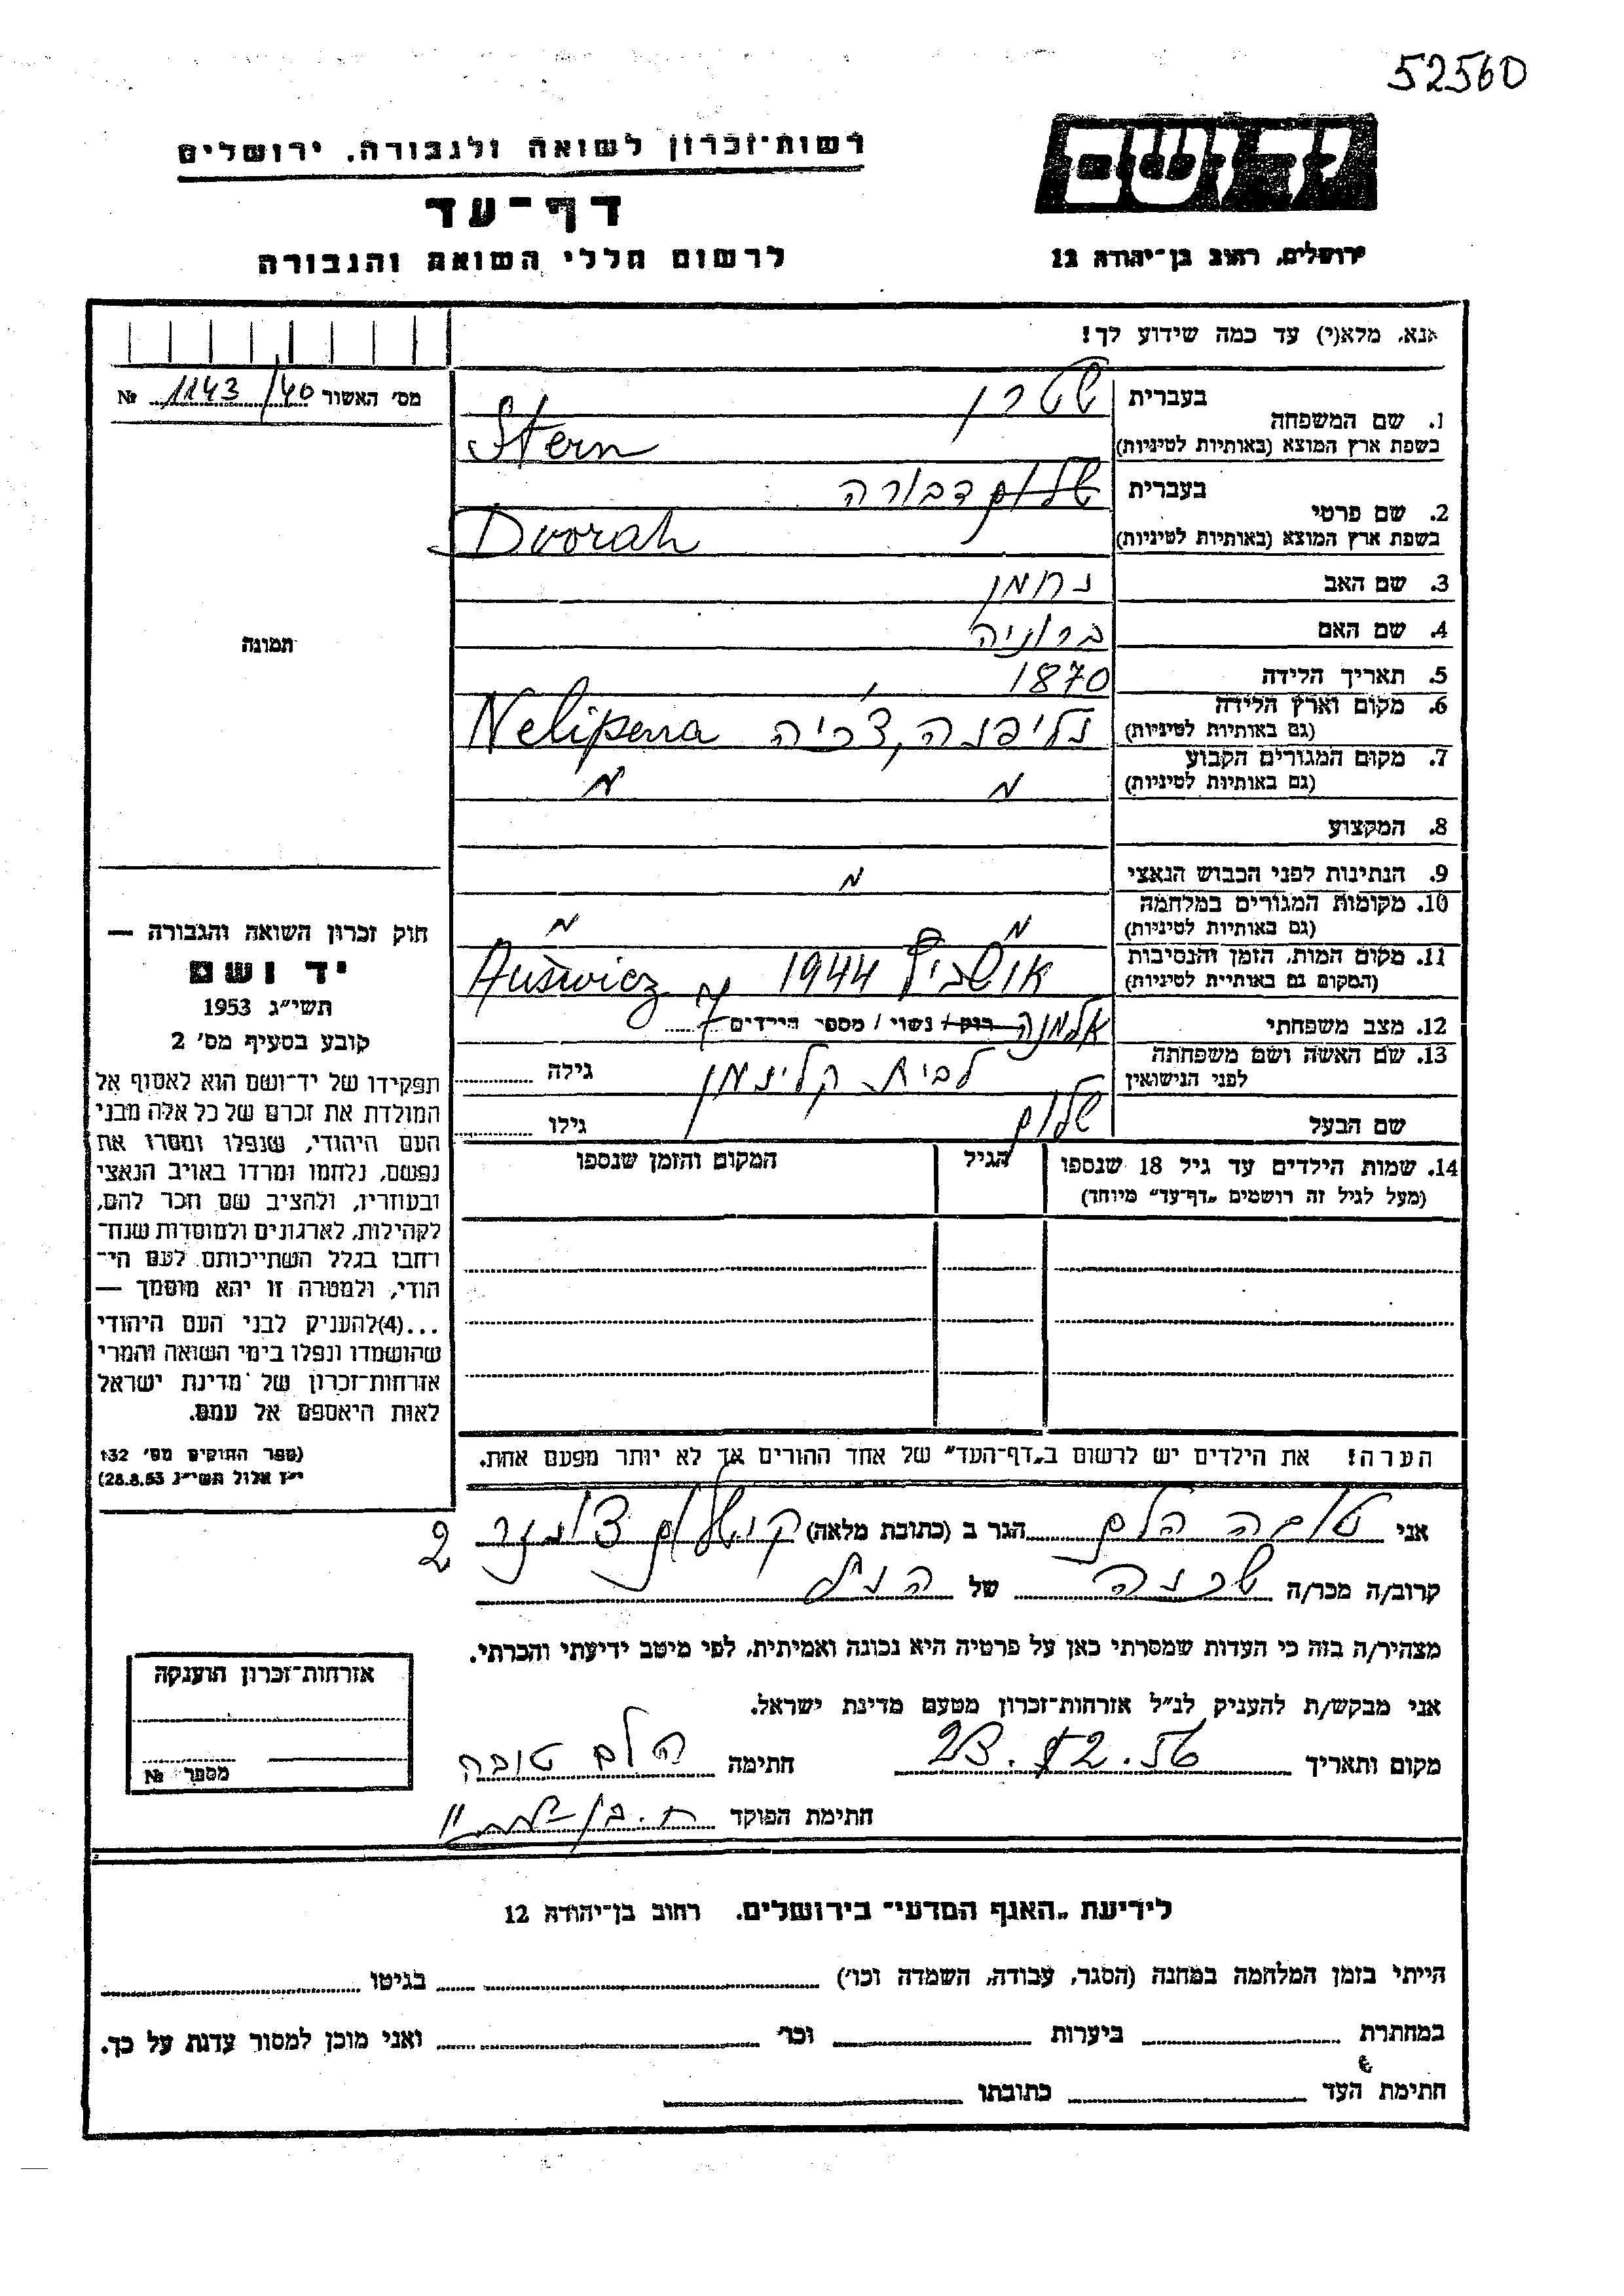 52560
יד ושם
רשות־זכרון לשואה ולגבורה, ירושלים
דף־עד
לרשום חללי השואה והגבורה
ירושלים, רחוב בן־יהודה 12
אנא, מלא(י) עד כמה שידוע לך!
מס׳ האשור 1143/40 №
1. שם המשפחה
בעברית שטרן
בשפת ארץ המוצא (באותיות לטיניות) Stern
2. שם פרטי
בעברית שלום דבורה
בשפת ארץ המוצא (באותיות לטיניות) Dvorah
3. שם האב נחמן
4. שם האם ברוניה
5. תאריך הלידה 1870
6. מקום וארץ הלידה
(גם באותיות לטיניות) נליפנה, צ׳כיה Nelipena
7. מקום המגורים הקבוע
(גם באותיות לטיניות) " "
8. המקצוע
9. הנתינות לפני הכבוש הנאצי "
10. מקומות המגורים במלחמה
(גם באותיות לטיניות) " "
11. מקום המות, הזמן והנסיבות
(המקום גם באותיית לטיניות) אושביץ 1944 Auświcz
12. מצב משפחתי אלמנה רוק/ נשוי / מספר הילדים 7
13. שם האשה ושם משפחתה
לפני הנישואין לבית קלינמן גילה
שם הבעל שלום גילו
14. שמות הילדים עד גיל 18 שנספו
(מעל לגיל זה רושמים „דף־עד” מיוחד)
הגיל
המקום והזמן שנספו
הערה! את הילדים יש לרשום ב„דף־העד” של אחד ההורים אך לא יותר מפעם אחת.
תמונה
חוק זכרון השואה והגבורה —
יד ושם
תשי״ג 1953
קובע בסעיף מס׳ 2
תפקידו של יד־ושם הוא לאסוף אל
המולדת את זכרם של כל אלה מבני
העם היהודי, שנפלו ומסרו את
נפשם, נלחמו ומרדו באויב הנאצי
ובעוזריו, ולהציב שם וזכר להם,
לקהילות, לארגונים ולמוסדות שנח־
רחבו בגלל השתייכותם לעם הי־
הודי, ולמטרה זו יהא מוסמך —
...(4)להעניק לבני העם היהודי
שהושמדו ונפלו בימי השואה והמרי
אזרחות־זכרון של מדינת ישראל
לאות היאספם אל עמם.
(ספר החוקים מס׳ 132
י״ז אלול תשי״ג 28.8.53)
אני טובה הלם הגר ב (כתובת מלאה) 2
קרוב/ה מכר/ה שכנה של הנ״ל
מצהיר/ה בזה כי העדות שמסרתי כאן על פרטיה היא נכונה ואמיתית, לפי מיטב ידיעתי והכרתי.
אני מבקש/ת להעניק לנ״ל אזרחות־זכרון מטעם מדינת ישראל.
מקום ותאריך 23.12.56 חתימה הלם טובה
חתימת הפוקד
אזרחות־זכרון הוענקה
מספר №
לידיעת „האגף המדעי” בירושלים. רחוב בן־יהודה 12
הייתי בזמן המלחמה במחנה (הסגר, עבודה, השמדה וכו׳) בגיטו
במחתרת ביערות וכו׳ ואני מוכן למסור עדות על כך.
חתימת העד כתובתו